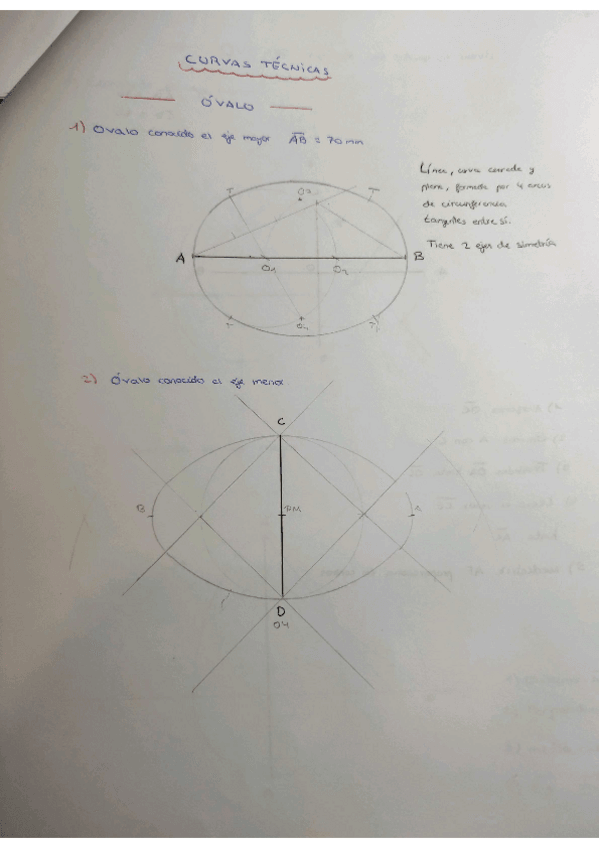 CURVAS TÉCNICAS
ÓVALO
1) Óvalo conocido el eje mayor AB = 70mm
Línea, curva cerrada y
plana, formada por 4 arcos
de circunferencia
tangentes entre sí.
Tiene 2 ejes de simetría
T O3 T
A B
O1 O2
T O4 T
2) Óvalo conocido el eje menor
C
B PM A
D
O4